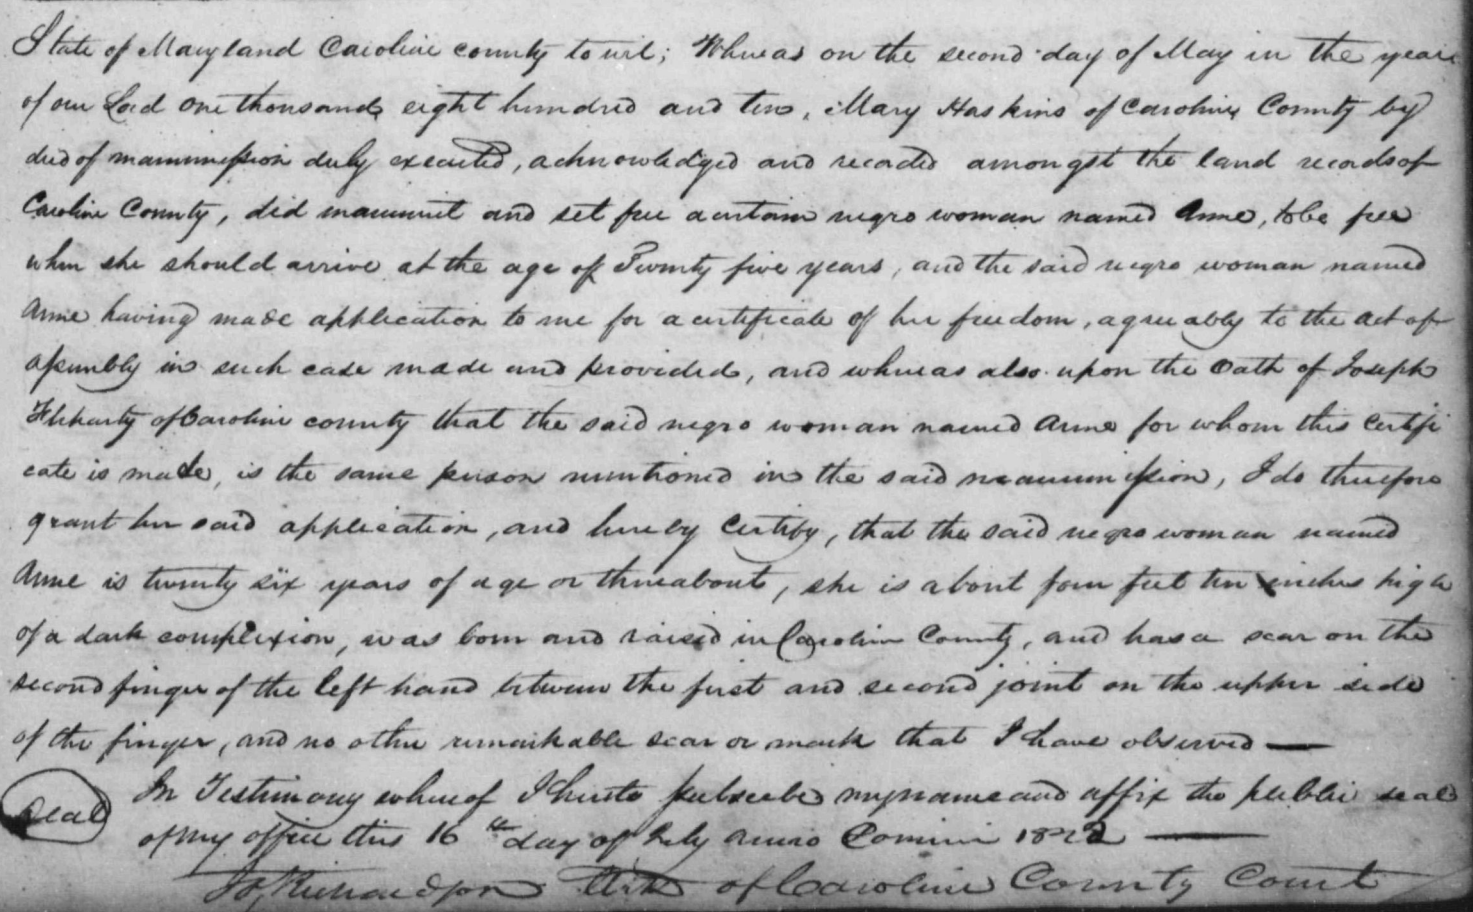 State of Maryland Caroline county to wit; Whereas on the second day of May in the year
of our Lord one thousand eight hundred and ten, Mary Haskins of Caroline County by
deed of manumission duly executed, acknowledged and recorded amongst the land records of
Caroline County, did manumit and set free a certain negro woman named Anne, to be free
when she should arrive at the age of Twenty five years, and the said negro woman named
Anne having made application to me for a certificate of her freedom, agreeably to the act of
assembly in such case made and provided, and whereas also upon the Oath of Joseph
of Caroline county that the said negro woman named Anne for whom this Certifi
cate is made, is the same person mentioned in the said manumission, I do therefore
grant her said application, and hereby Certify, that the said negro woman named
Anne is twenty six years of age or thereabout, she is about four feet ten inches high
of a dark complexion, was born and raised in Caroline County, and has a scar on the
second finger of the left hand between the first and second joint on the upper side
of the finger, and no other remarkable scar or mark that I have observed —
Seal
In Testimony whereof I hereto subscribe my name and affix the public seal
of my office this 16th day of July Anno Domini 1822 —
Jo, Richardson Clerk of Caroline County Court